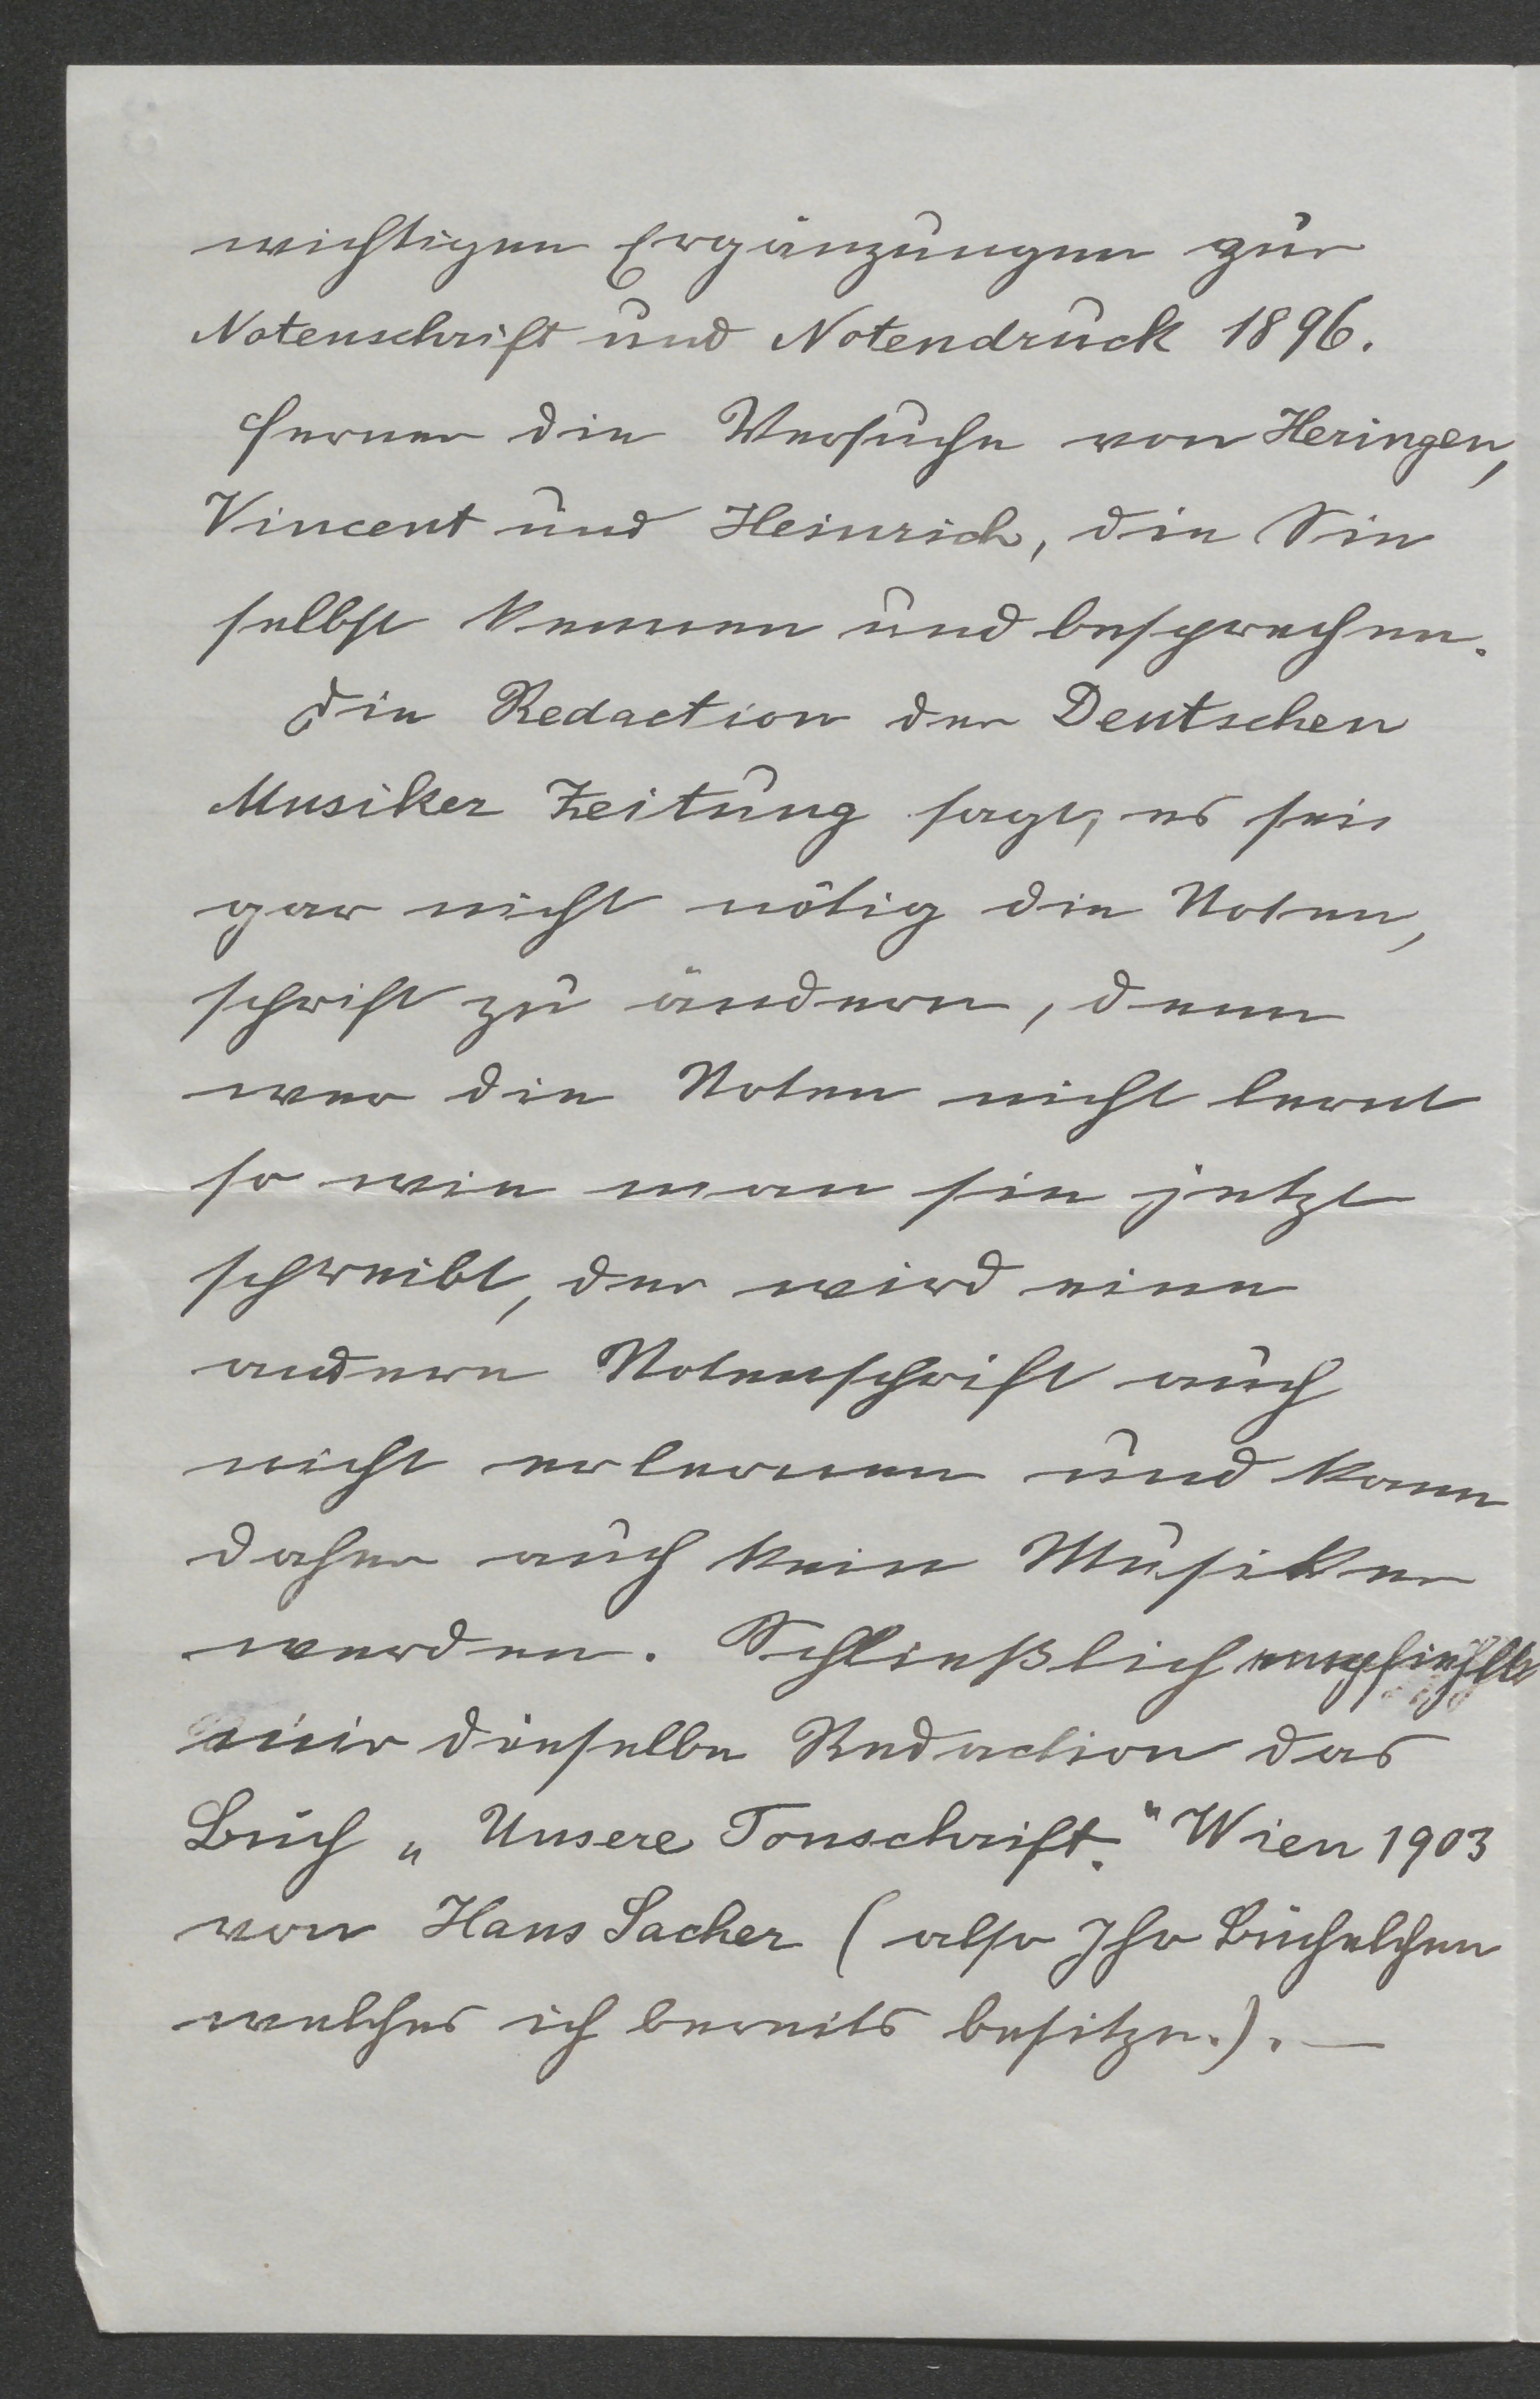 wichtigen Ergänzungen zur
Notenschrift und Notendruck 1896.
ferner die Versuche von Heringen,
Vincent und Heinrich, die Sie
selbst kennen und besprechen.
Die Redaction der Deutschen
Musiker Zeitung sagt, es sei
gar nicht nötig die Noten,
schrift zu ändern, denn
wer die Noten nicht lernt
so wie man sie jetzt
schreibt, der wird eine
andere Notenschrift auch
nicht erlernen und kann
daher auch kein Musiker
werden. Schließlich empfiehlt
mir dieselbe Redaction das
Buch „Unsere Tonschrift." Wien 1903
von Hans Sacher (also Ihr Büchelchen
welches ich bereits besitze.). —